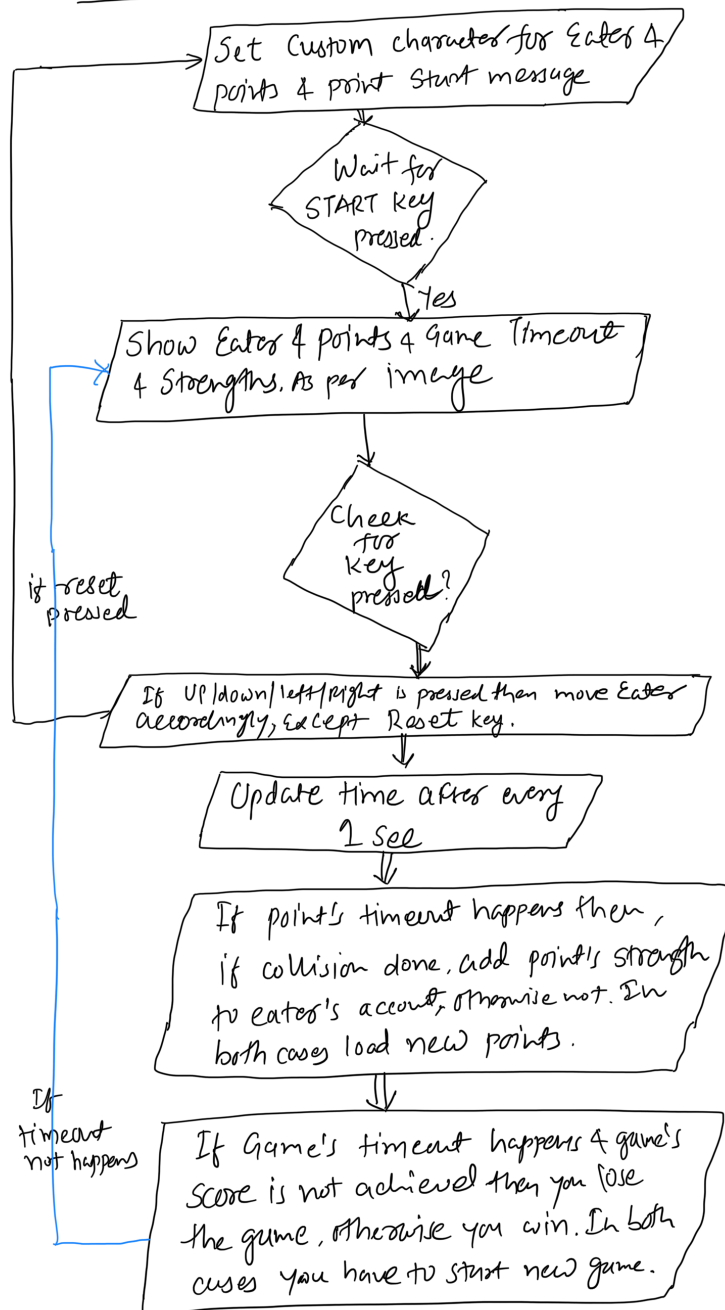 Set Custom character for Eater &
points & print Start message
Wait for
START Key
pressed.
Yes
Show Eater & points & Game Timeout
& Strengths. As per image
Check
for
key
pressed?
if reset
pressed
If UP/down/left/Right is pressed then move Eater
accordingly, Except Reset key.
Update time after every
1 sec
If point's timeout happens then,
if collision done, add point's strength
to eater's account, otherwise not. In
both cases load new points.
If
timeout
not happens
If Game's timeout happens & game's
score is not achieved then you lose
the game, otherwise you win. In both
cases you have to start new game.